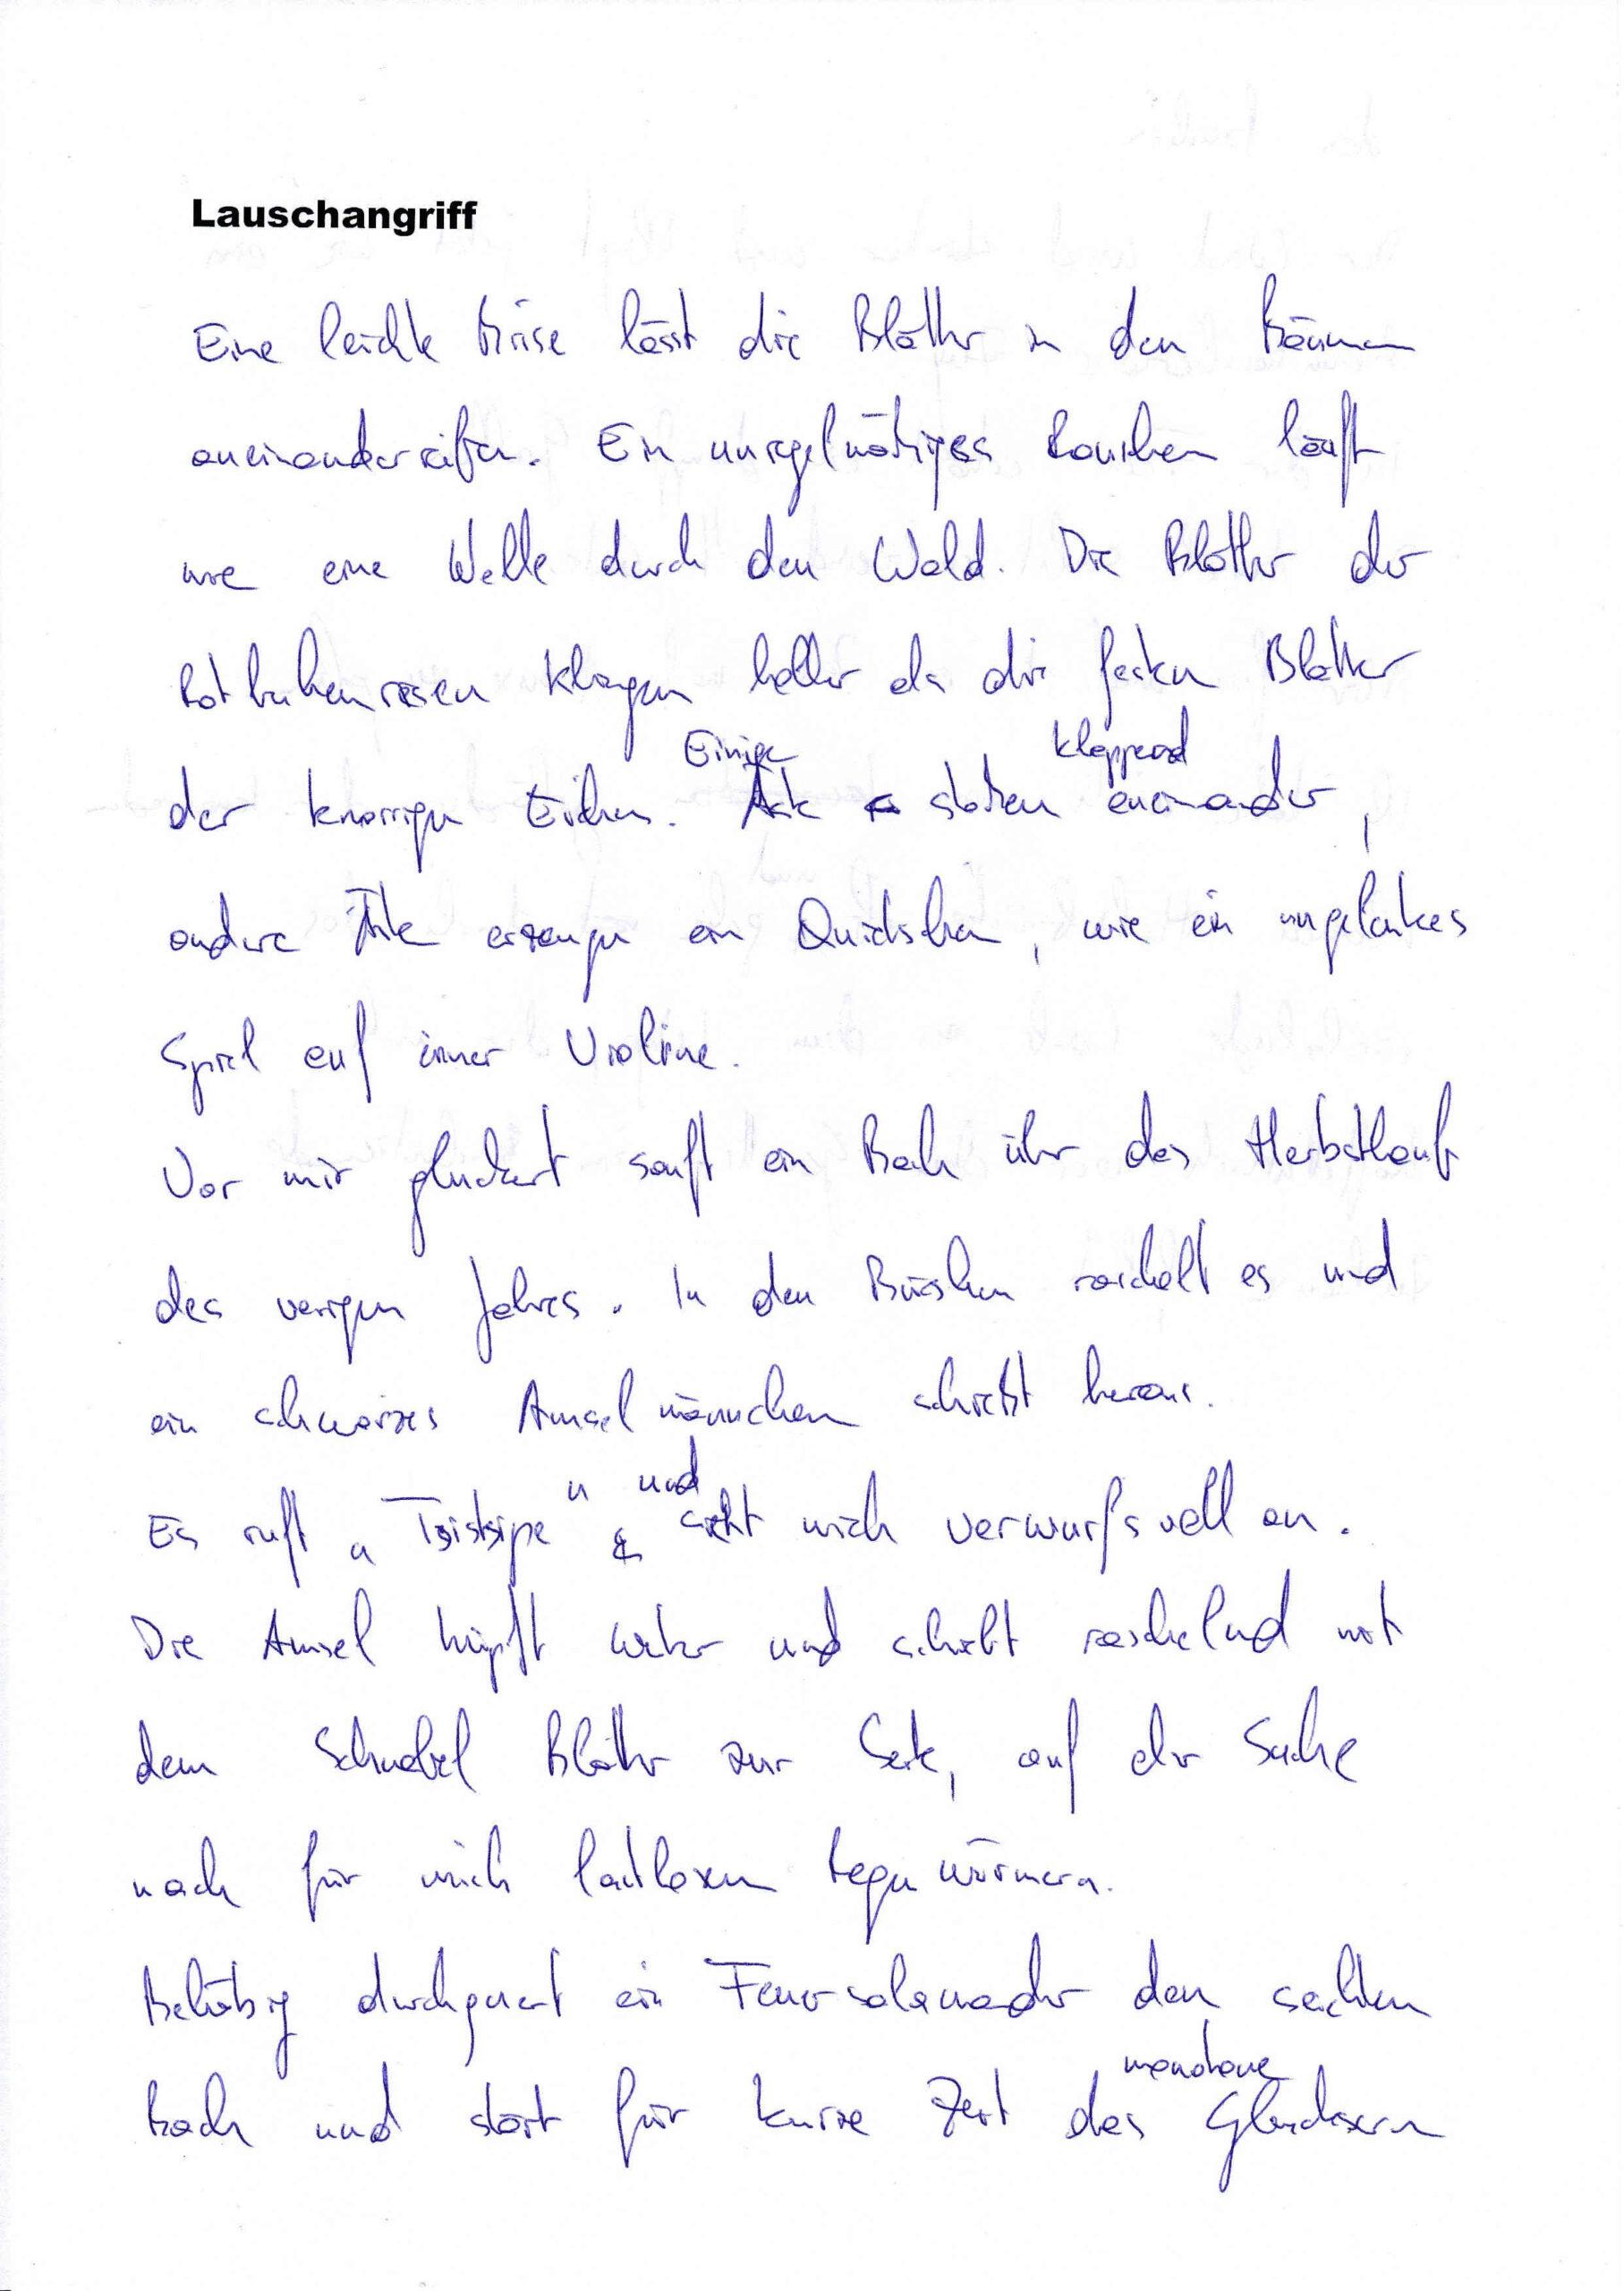 Lauschangriff
Eine leichte Brise lässt die Blätter in den Bäumen
aneinanderreiben. Ein unregelmäßiges Rauschen läuft
wie eine Welle durch den Wald. Die Blätter der
Rotbuchenriesen klingen heller als die festen Blätter
Einige klappernd
der knorrigen Eichen. Äste stoßen aneinander,
andere Äste erzeugen ein Quietschen, wie ein ungelenkes
Spiel auf einer Violine.
Vor mir gluckert sanft ein Bach über das Herbstlaub
des vorigen Jahres. In den Büschen raschelt es und
ein schwarzes Amselmännchen schießt heraus.
und
Es ruft „Tsistsipe“ sieht mich verwurfsvoll an.
Die Amsel hüpft weiter und schiebt raschelnd mit
dem Schnabel Blätter zur Seite, auf der Suche
nach für mich lautlosen Regenwürmern.
Behäbig durchquert ein Feuersalamander den seichten
monotone
Bach und stört für kurze Zeit das Glucksern